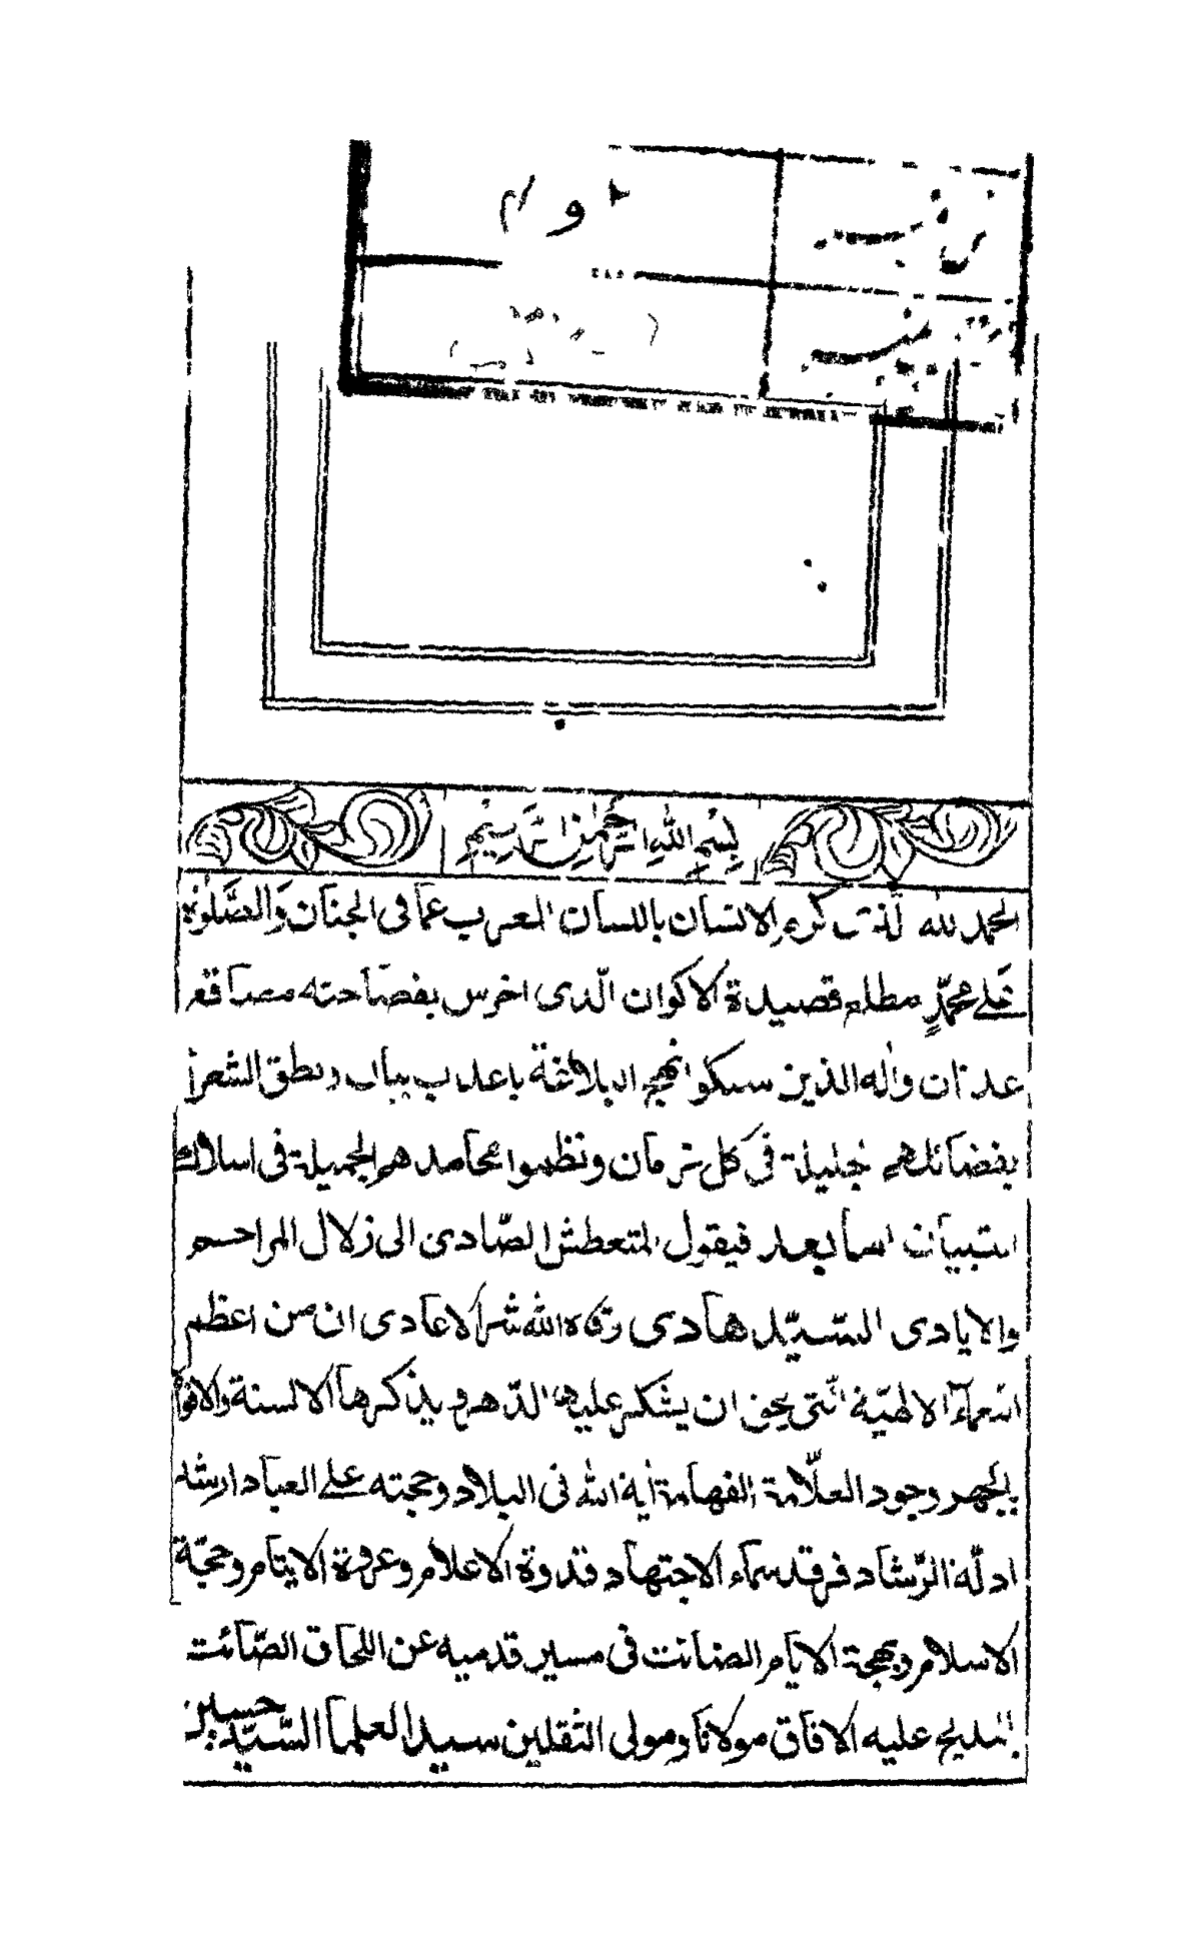 بسم الله الرحمن الرحيم
الحمد لله الذى كرم الانسان باللسان المعرب عما فى الجنان وَالصَّلٰوة
على محمّدٍ مطلع قصيدة الاكوان الّذى اخرس بفصاحته مصاقع
عدنان واٰله الذين سلكوا نهج البلاغة باعذب بيان ونطق الشعراٰ
بفضائلهم جليلة فى كل زمان ونظموا محامدهم الجميلة فى اسلاك
التبيان اما بعد فيقول المتعطش الصّادى الى زلال المراحم
والايادى السّيّد هادى وقاه الله شر الاعادى ان من اعظم
النعماٰء الالهيّة الّتى يحق ان يشكر عليها الدّهر ويذكرها الالسنة والافواه
بالجهر وجود العلّامة الفهامة اٰية الله فى البلاد وحجته على العباد ارشد
ادلّة الرّشاد فرقد سماء الاجتهاد قدوة الاعلام وعروة الايتام وحجّة
الاسلام وبهجة الايام الضانت فى مسير قدميه عن اللحاق الصّائت
بمديح عليه الافاق مولانا ومولى الثقلين سيد العلما السّيّد حسين